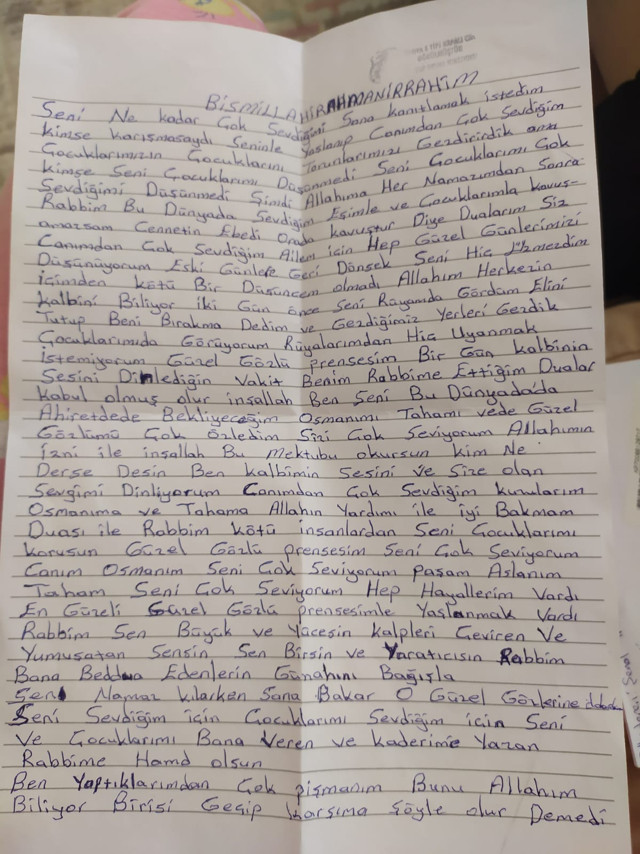 BİSMİLLAHİRAHMANİRRAHİM
Seni Ne kadar Çok Sevdiğini Sana kanıtlamak istedim
kimse karışmasaydı Seninle Yaşlanıp Canımdan Çok Sevdiğim
Çocuklarımızın Çocuklarını Torunlarımızı Gezdirirdik ama
kimse Seni Çocuklarımı Düşünmedi Seni Çocuklarımı Çok
Sevdiğimi Düşünmedi Şimdi Allahıma Her Namazımdan Sonra
Rabbim Bu Dünyada Sevdiğim Eşimle ve Çocuklarımla kavuş-
amazsam Cennetin Ebedi Orada kavuştur Diye Dualarım Siz
Canımdan Çok Sevdiğim Ailem için Hep Güzel Günlerimizi
Düşünüyorum Eski Günlere Geri Dönsek Seni Hiç Üzmezdim
içimden kötü Bir Düşüncem olmadı Allahım Herkezin
kalbini Biliyor iki Gün önce Seni Rüyamda Gördüm Elini
Tutup Beni Bırakma Dedim ve Gezdiğimiz Yerleri Gezdik
Çocuklarımıda Görüyorum Rüyalarımdan Hiç Uyanmak
istemiyorum Güzel Gözlü prensesim Bir Gün kalbinin
Sesini Dinlediğin Vakit Benim Rabbime Ettiğim Dualar
kabul olmuş olur inşallah Ben Seni Bu Dünyada'da
Ahiretdede Bekliyeceğim Osmanımı Tahamı vede Güzel
Gözlümü Çok özledim Sizi Çok Seviyorum Allahımın
izni ile inşallah Bu Mektubu okursun kim Ne
Derse Desin Ben kalbimin Sesini ve Size olan
Sevgimi Dinliyorum Canımdan Çok Sevdiğim kuzularım
Osmanıma ve Tahama Allahın Yardımı ile iyi Bakmam
Duası ile Rabbim kötü insanlardan Seni Çocuklarımı
korusun Güzel Gözlü prensesim Seni Çok Seviyorum
Canım Osmanım Seni Çok Seviyorum paşam Aslanım
Taham Seni Çok Seviyorum Hep Hayallerim Vardı
En Güzeli Güzel Gözlü prensesimle Yaşlanmak Vardı
Rabbim Sen Büyük ve Yücesin kalpleri Çeviren Ve
Yumuşatan Sensin Sen Birsin ve Yaratıcısın Rabbim
Bana Beddua Edenlerin Günahını Bağışla
Seni Namaz kılarken Sana Bakar O Güzel Gözlerine
Seni Sevdiğim için Çocuklarımı Sevdiğim için Seni
Ve Çocuklarımı Bana Veren ve kaderime Yazan
Rabbime Hamd olsun
Ben Yaptıklarımdan Çok pişmanım Bunu Allahım
Biliyor Birisi Geçip karşıma şöyle olur Demedi